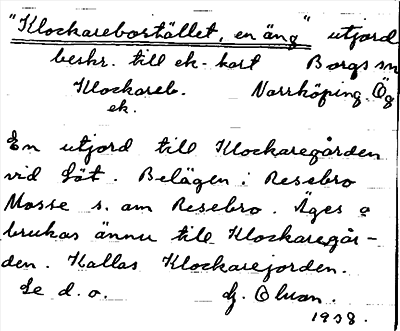 "Klockarebostället, en äng" utjord
beskr. till ek. kart Borgs sn
Klockareb. Norrköping. Ög
ek.
En utjord till Klockaregården
vid Löt. Belägen i Resebro
Mosse s. om Resebro. Äges o
brukas ännu till Klockaregår-
den. Kallas Klockarejorden.
Se d. o. G. Olson.
1938.